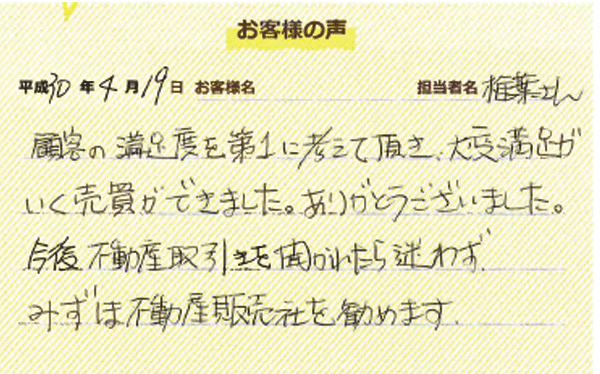 お客様の声
平成30年4月19日 お客様名 担当者名 椎葉さん
顧客の満足度を第1に考えて頂き、大変満足が
いく売買ができました。ありがとうございました。
今後不動産取引きを聞かれたら迷わず
みずほ不動産販売社を勧めます.